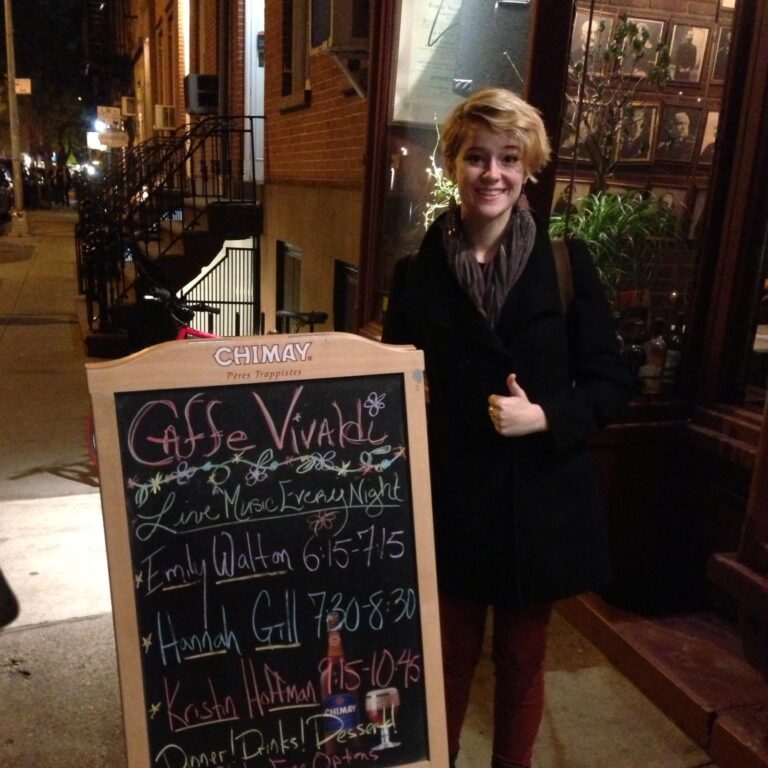 CHIMAY
Pères Trappistes
Caffe Vivaldi
Live Music Every Night
Emily Walton 6:15-7:15
Hannah Gill 7:30-8:30
Kristin Hoffman 9:15-10:45
CHIMAY
Dinner! Drinks! Desserts!
Free Options